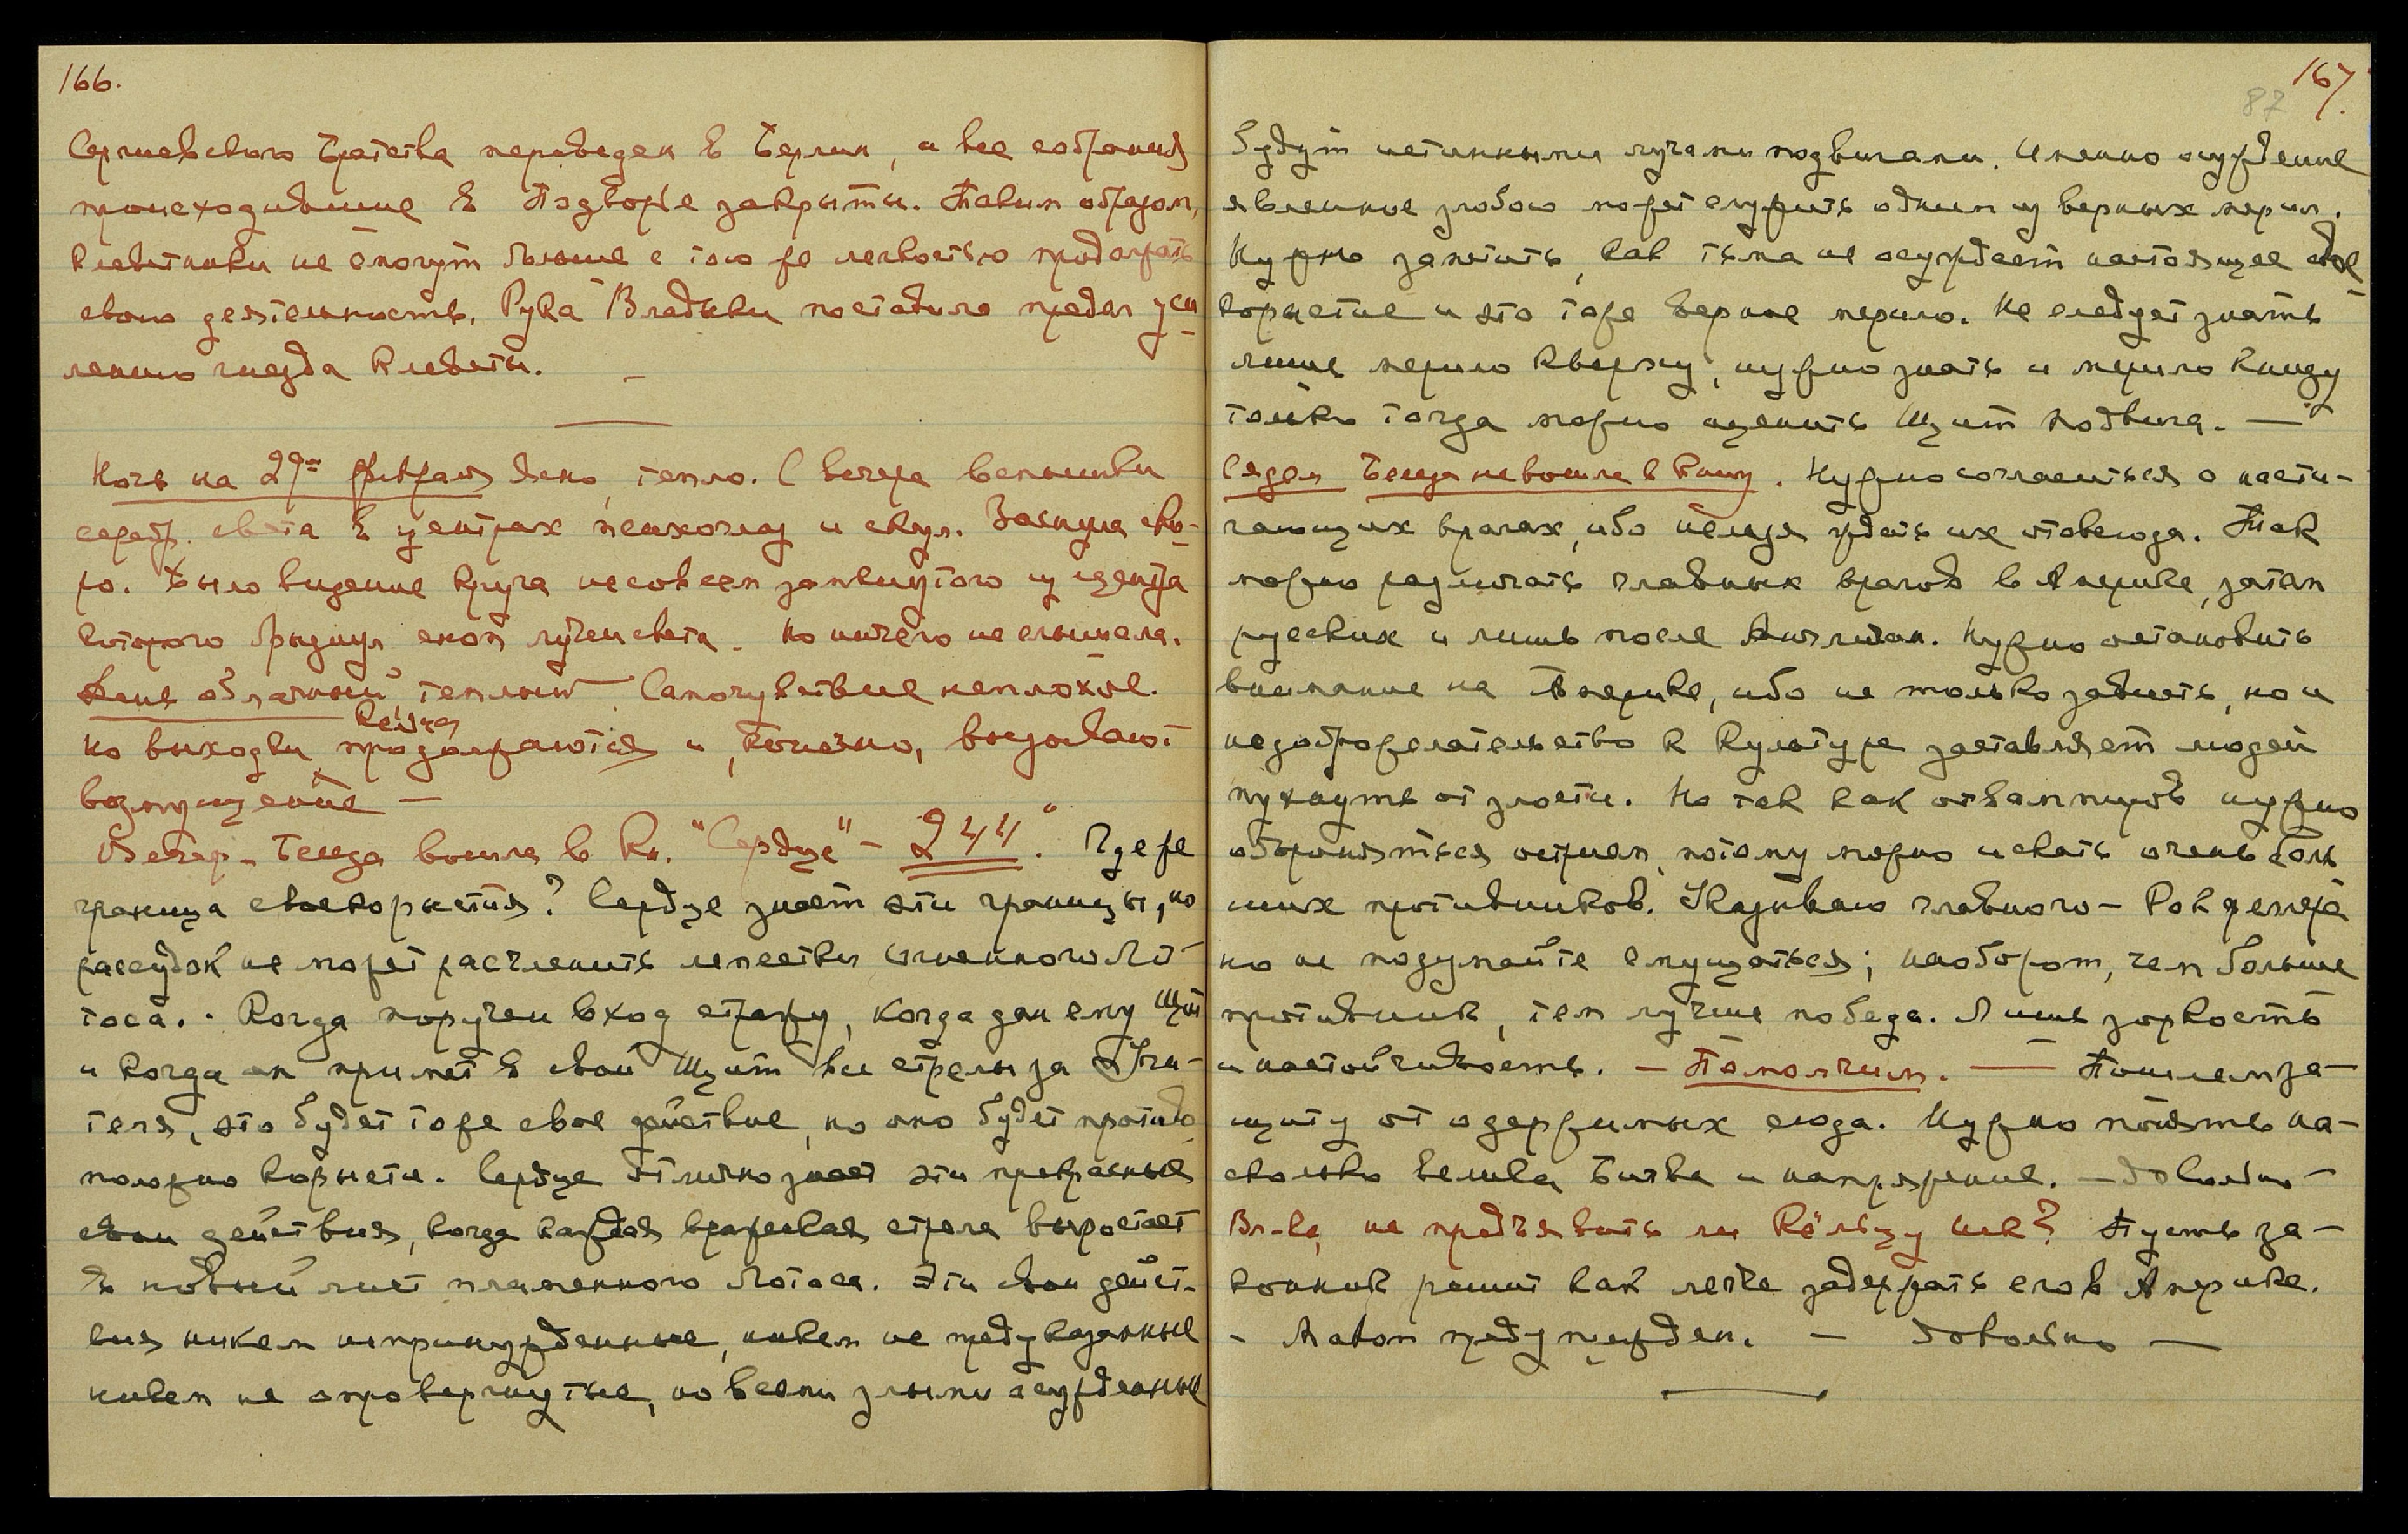 166.
Сергиевского Братства переведен в Берлин, и все собрания
происходившие в Подворье закрыты. Таким образом,
клеветники не смогут больше с тою же легкостью продолжать
свою деятельность. Рука Владыки поставила предел уси-
лению гнезда клеветы. —
Ночь на 29ое февраля Ясно, тепло. С вечера вспышки
серебр. света в центрах психоглаз и скул. Заснула ско-
ро. Было видение круга не совсем замкнутого из центра
которого брызнул сноп лучей света. Но ничего не слышала.
День облачный, теплый. Самочувствие неплохое.
Кейца
Но выходки продолжаются и, конечно, вызывают
возмущение —
Вечер — Беседа вошла в Кн. "Сердце" — 244." Где же
граница своекорыстия? Сердце знает эти границы, но
рассудок не может расчленить лепестки огненного Ло-
тоса. Когда поручен вход стражу, когда дан ему Щит
и когда он примет в свой Щит все стрелы за Учи-
теля, это будет тоже свое действие, но оно будет противо-
положно корысти. Сердце отлично знает эти прекрасные
свои действия, когда каждая вражеская стрела вырастает
в новый лист пламенного Лотоса. Эти свои дейст-
вия никем непринужденные, никем не предуказанные
никем не опровергнутые, но всеми злыми осужденные
167.
87
будут истинными лучами подвигами. Именно осуждение
явленное злобою может служить одним из верных мерил.
Нужно заметить, как тьма не осуждает настоящее свое-
корыстие и это тоже верное мерило. Не следует знать
лишь мерило кверху, нужно знать и мерило книзу
только тогда можно оценить Щит подвига. —
Сядем Беседа не вошла в Книгу. Нужно согласиться о насти-
гающих врагах, ибо нельзя ждать их отовсюда. Так
можно различать главных врагов в Америке, затем
русских и лишь после Англичан. Нужно остановить
внимание на Америке, ибо не только зависть, но и
недоброжелательство к Культуре заставляет людей
пухнуть от злости. Но так как от вампиров нужно
оборониться острием, потому можно искать очень боль-
ших противников. Указываю главного — Рокфеллера
но не подумайте смущаться; наоборот, чем больше
противник, тем лучше победа. Лишь зоркость
и настойчивость. — Помолчим. — Пошлем за-
щиту от одержимых сюда. Нужно понять на-
сколько велика Битва и напряжение. — Довольно —
Вл-ка, не предъявить ли Кейцу иск? Пусть за-
конник решит как легче задержать его в Америке.
— Лавом предупрежден. — Довольно —